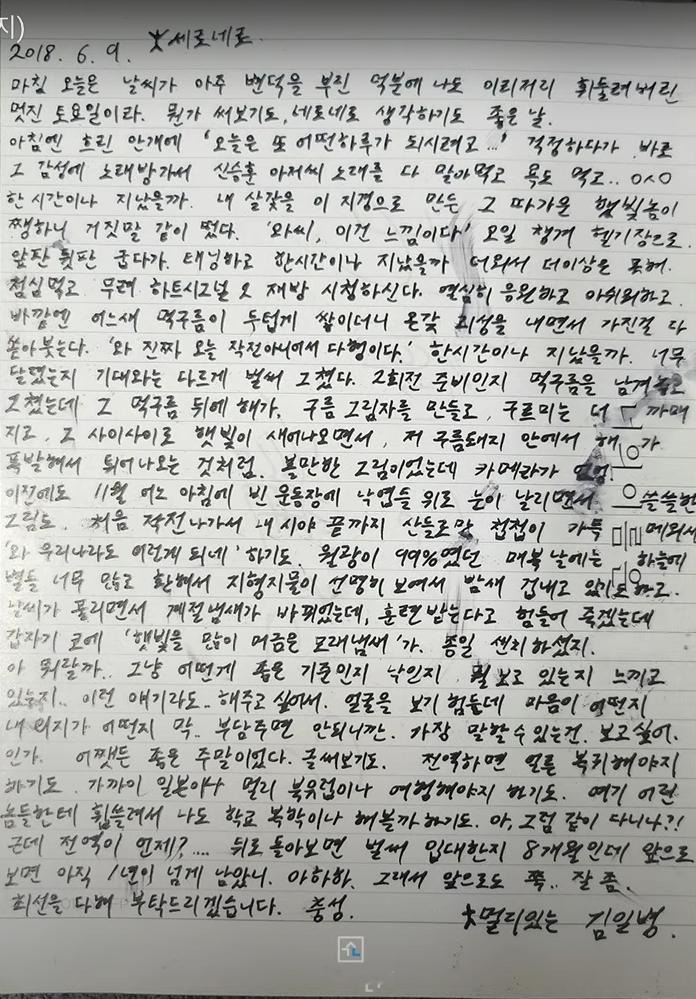 지)
2018. 6. 9. 세로네로.
마침 오늘은 날씨가 아주 변덕을 부린 덕분에 나도 이리저리 휘둘려버린
멋진 토요일이라. 뭔가 써보기도, 네로네로 생각하기도 좋은 날.
아침엔 흐린 안개에 '오늘은 또 어떤하루가 되시려고...' 걱정하다가 바로
그 감성에 노래방가서 신승훈 아저씨 노래를 다 말아먹고 욕도 먹고..
한시간이나 지났을까. 내 살갗을 이 지경으로 만든 그 따가운 햇빛놈이
쨍하니 거짓말 같이 떴다. '와씨, 이건 느낌이다' 오일 챙겨 헬기장으로.
앞판 뒷판 굽다가. 태닝하고 한시간이나 지났을까 더워서 더이상은 못해.
점심먹고 무려 하트시그널 2 재방 시청하신다. 열심히 응원하고 아쉬워하고.
바깥엔 어느새 먹구름이 두텁게 쌓이더니 온갖 괴성을 내면서 가진걸 다
쏟아붓는다. '와 진짜 오늘 작전아니어서 다행이다.' 한시간이나 지났을까. 너무
달렸는지 기대와는 다르게 벌써 그쳤다. 2회전 준비인지 먹구름을 남겨놓고
그쳤는데 그 먹구름 뒤에 해가, 구름 그림자를 만들고, 구르미는 더 까매
지고, 그 사이사이로 햇빛이 새어나오면서, 저 구름돼지 안에서 해가
폭발해서 튀어나오는 것처럼. 볼만한 그림이었는데 카메라가
이전에도 11월 어느 아침에 빈 운동장에 낙엽들 위로 눈이 날리면서 쓸쓸한
그림도. 처음 작전나가서 내 시야 끝까지 산들로만 첩첩이 가득 메워서
'와 우리나라도 이렇게 되네' 하기도. 월광이 99%였던 매복 날에는 하늘에
별들 너무 많고 환해서 지형지물이 선명히 보여서 밤새 겁내고 있기도하고.
날씨가 풀리면서 계절냄새가 바뀌었는데, 훈련받는다고 힘들어 죽겠는데
갑자기 코에 '햇빛을 많이 머금은 모래냄새'가. 종일 센치하셨지.
아 뭐랄까.. 그냥 어떻게 좁은 기준인지 낙인지 뭘 보고 있는지 느끼고
있는지.. 이런 얘기라도.. 해주고 싶어서. 얼굴을 보기 힘든데 마음이 어떤지
내 의지가 어떤지 막.. 부담주면 안되니깐. 가장 말할수있는건. 보고싶어.
인가. 어쨌든 좋은 주말이었다. 글써보기도. 전역하면 얼른 복귀해야지
하기도. 가까이 일본이나 멀리 북유럽이나 여행해야지 하기도. 여기 어린
놈들한테 휩쓸려서 나도 학교 복학이나 해볼까하기도. 아, 그럼 같이 다니나?!
근데 전역이 언제?.... 뒤로 돌아보면 벌써 입대한지 8개월인데 앞으로
보면 아직 1년이 넘게 남았니. 아하하. 그래서 앞으로도 쭉.. 잘 좀.
최선을 다해 부탁드리겠습니다. 충성.
멀리있는 김일병.